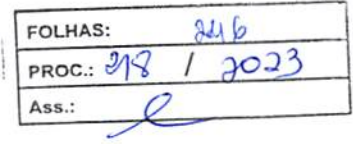 FOLHAS: 246
PROC.: 218 / 2023
Ass.: